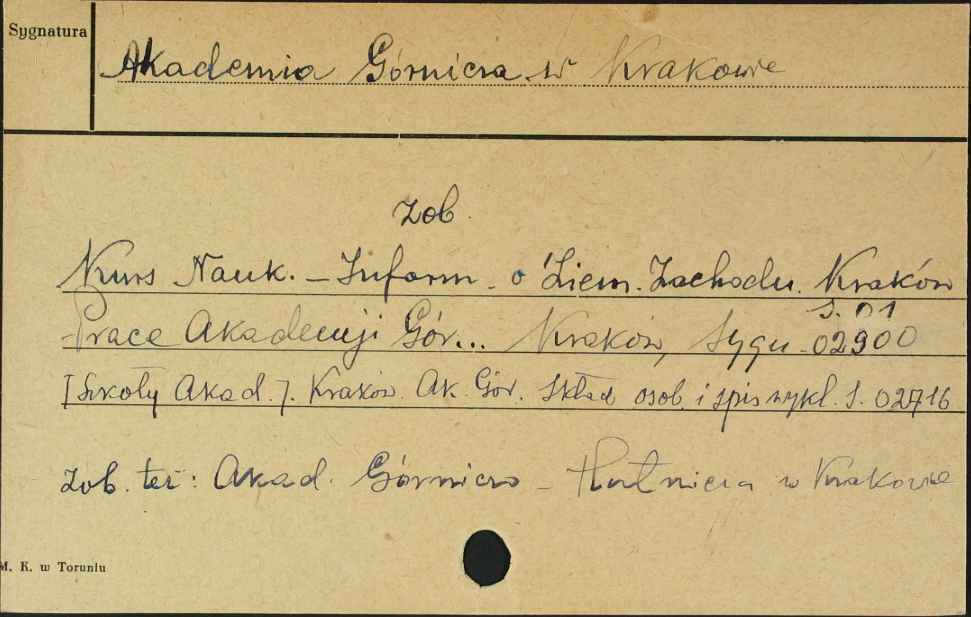 Sygnatura
Akademia Górnicza w Krakowie
zob.
Kurs Nauk. - Inform. o Ziem. Zachodn. Kraków
S. 01
Prace Akademji Gór... Kraków, Sygn. 02900
[Szkoły Akad.]. Kraków. Ak. Gór. Skład osob. i spis wykl. S. 02716
zob. też: Akad. Górniczo - Hutnicza w Krakowie
M. K. w Toruniu